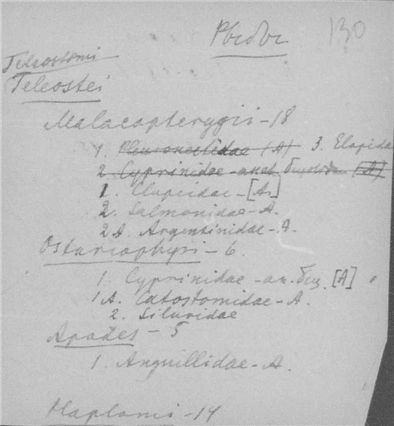 130
Teleostomi
Teleostei
Malacopterygii - 18
1. Pleuronectidae (A) 3. Elopidae
2. Cyprinidae - (A)
1. Clupeidae - [A]
2. Salmonidae - A.
2A. Argentinidae - A.
Ostariophysi - 6.
1. Cyprinidae - [A]
1A. Catostomidae - A.
2. Siluridae
Apodes - 5
1. Anguillidae - A.
Haplomi - 14